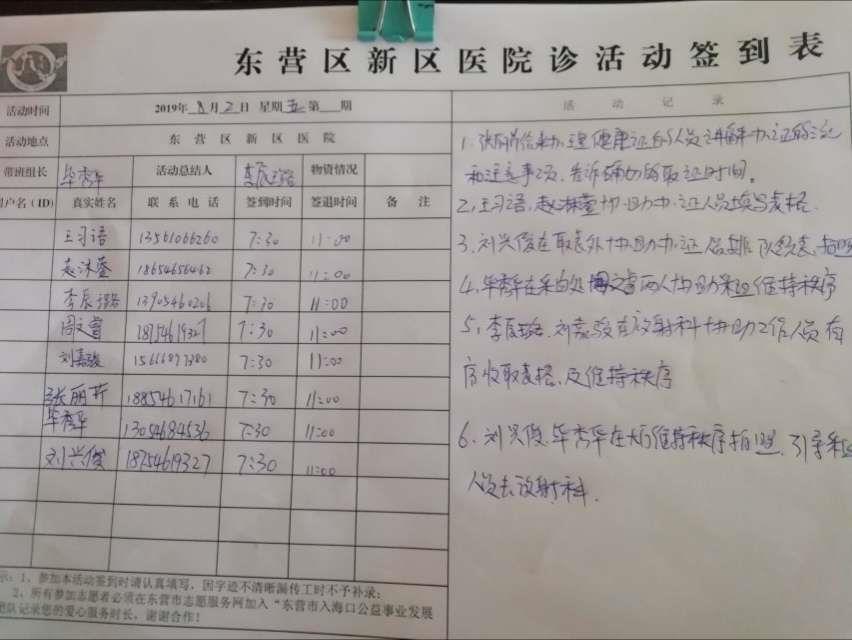 东营区新区医院诊活动签到表
活动时间 2019年8月2日 星期五 第 期
活动地点 东营区新区医院
带班组长 毕秀华 活动总结人 李辰璐 物资情况
用户名(ID) 真实姓名 联系电话 签到时间 签退时间 备注
王习语 13561066260 7:30 11:00
赵沐蓥 18654656462 7:30 11:00
李辰璐 13905460206 7:30 11:00
周文睿 18754619327 7:30 11:00
刘嘉骏 15666897380 7:30 11:00
张丽芹 18854617161 7:30 11:00
毕秀华 13054684536 7:30 11:00
刘兴俊 18754619327 7:30 11:00
示:1、参加本活动签到时请认真填写,因字迹不清晰漏传工时不予补录;
2、所有参加志愿者必须在东营市志愿服务网加入“东营市入海口公益事业发展
团队记录您的爱心服务时长,谢谢合作!
活动记录
1、张丽芹给来办理健康证的人员讲解办证的
和注意事项,告诉确切的取证时间。
2、王习语、赵沐蓥协助办证人员填写表格.
3、刘兴俊在取表外协助办证人员排队
4、毕秀华在采血处周文睿两人协助采血维持秩序
5、李辰璐、刘嘉骏在放射科协助工作人员有
序收取表格,及维持秩序
6、刘兴俊、毕秀华在大厅维持秩序拍照、引导
人员去放射科.